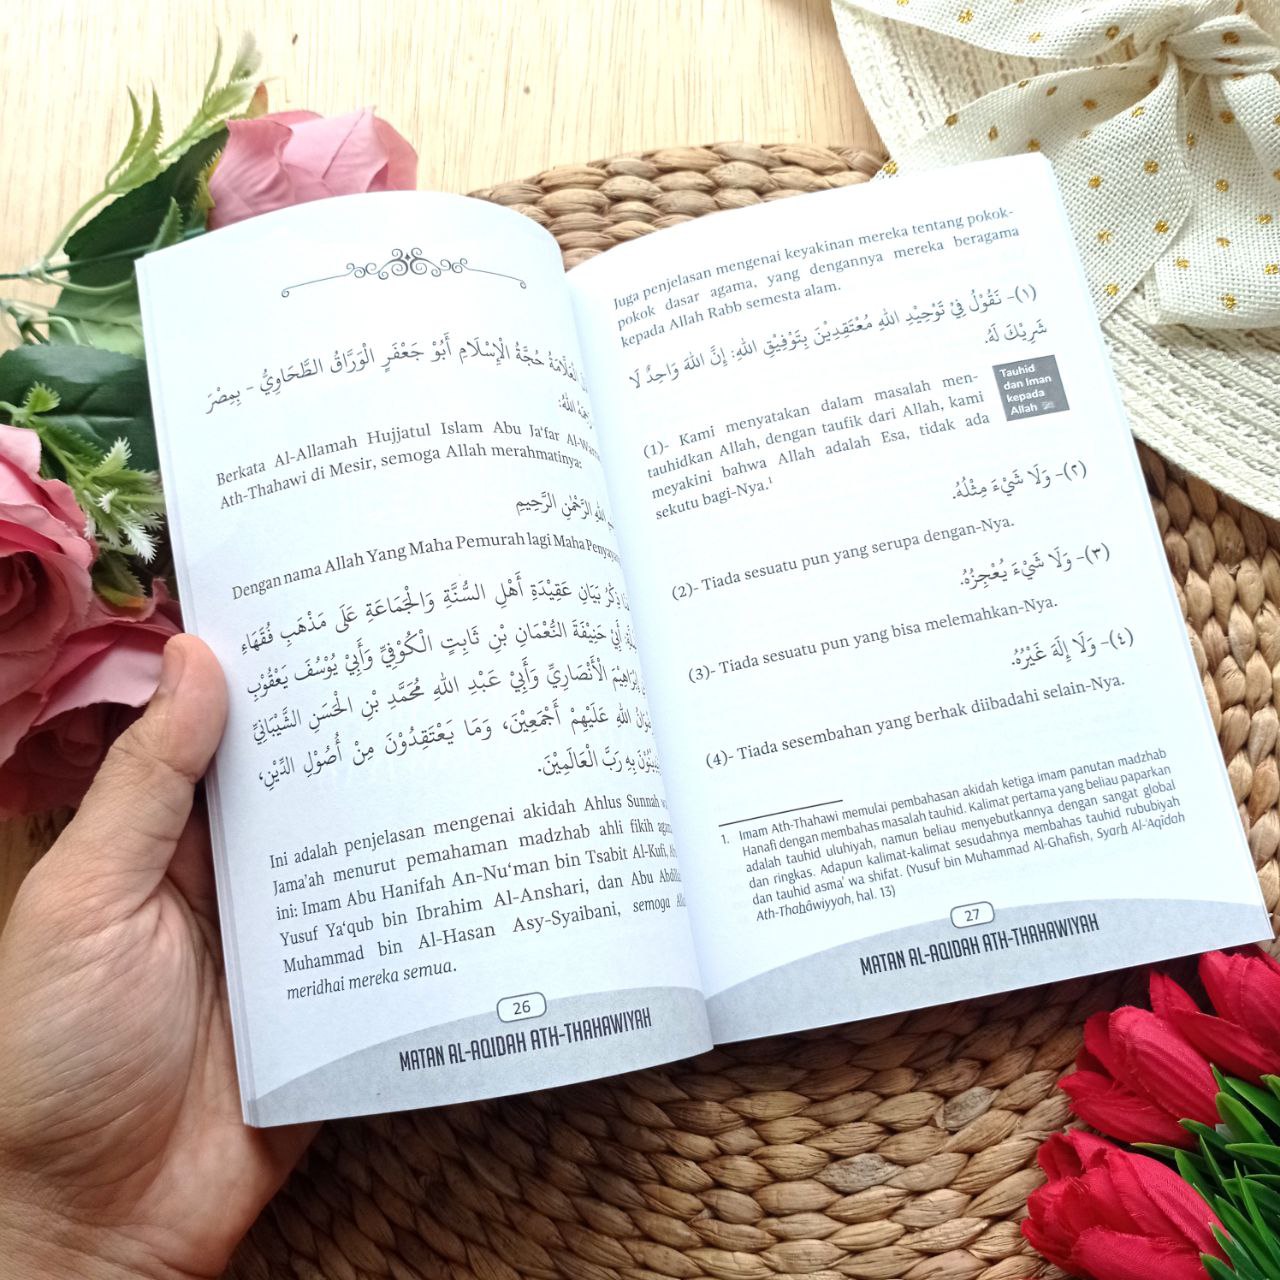 الْعَلَّامَةُ حُجَّةُ الْإِسْلَامِ أَبُوْ جَعْفَرٍ الْوَرَّاقُ الطَّحَاوِيُّ - بِمِصْرَ
اللهُ:
Berkata Al-Allamah Hujjatul Islam Abu Ja'far
Ath-Thahawi di Mesir, semoga Allah merahmatinya:
اللهِ الرَّحْمٰنِ الرَّحِيمِ
Dengan nama Allah Yang Maha Pemurah lagi Maha
ذِكْرُ بَيَانِ عَقِيْدَةِ أَهْلِ السُّنَّةِ وَالْجَمَاعَةِ عَلَى مَذْهَبِ فُقَهَاءِ
أَبِيْ حَنِيْفَةَ النُّعْمَانِ بْنِ ثَابِتٍ الْكُوْفِيِّ وَأَبِيْ يُوْسُفَ يَعْقُوْبَ
إِبْرَاهِيْمَ الْأَنْصَارِيِّ وَأَبِيْ عَبْدِ اللهِ مُحَمَّدِ بْنِ الْحَسَنِ الشَّيْبَانِيِّ
اللهِ عَلَيْهِمْ أَجْمَعِيْنَ، وَمَا يَعْتَقِدُوْنَ مِنْ أُصُوْلِ الدِّيْنِ،
بِهِ رَبَّ الْعَالَمِيْنَ.
Ini adalah penjelasan mengenai akidah Ahlus Sunnah
Jama'ah menurut pemahaman madzhab ahli fikih
ini: Imam Abu Hanifah An-Nu'man bin Tsabit Al-Kufi,
Yusuf Ya'qub bin Ibrahim Al-Anshari, dan Abu
Muhammad bin Al-Hasan Asy-Syaibani, semoga
meridhai mereka semua.
26
MATAN AL-AQIDAH ATH-THAHAWIYAH
Juga penjelasan mengenai keyakinan mereka tentang pokok-
pokok dasar agama, yang dengannya mereka beragama
kepada Allah Rabb semesta alam.
(١)- نَقُوْلُ فِيْ تَوْحِيْدِ اللهِ مُعْتَقِدِيْنَ بِتَوْفِيْقِ اللهِ: إِنَّ اللهَ وَاحِدٌ لَا
شَرِيْكَ لَهُ.
Tauhid
dan Iman
kepada
Allah
(1)- Kami menyatakan dalam masalah men-
tauhidkan Allah, dengan taufik dari Allah, kami
meyakini bahwa Allah adalah Esa, tidak ada
sekutu bagi-Nya.¹
(٢)- وَلَا شَيْءَ مِثْلُهُ.
(2)- Tiada sesuatu pun yang serupa dengan-Nya.
(٣)- وَلَا شَيْءَ يُعْجِزُهُ.
(3)- Tiada sesuatu pun yang bisa melemahkan-Nya.
(٤)- وَلَا إِلٰهَ غَيْرُهُ.
(4)- Tiada sesembahan yang berhak diibadahi selain-Nya.
1. Imam Ath-Thahawi memulai pembahasan akidah ketiga imam panutan madzhab
Hanafi dengan membahas masalah tauhid. Kalimat pertama yang beliau paparkan
adalah tauhid uluhiyah, namun beliau menyebutkannya dengan sangat global
dan ringkas. Adapun kalimat-kalimat sesudahnya membahas tauhid rububiyah
dan tauhid asma' wa shifat. (Yusuf bin Muhammad Al-Ghafish, Syarḫ Al-'Aqîdah
Ath-Thaḫâwiyyah, hal. 13)
27
MATAN AL-AQIDAH ATH-THAHAWIYAH